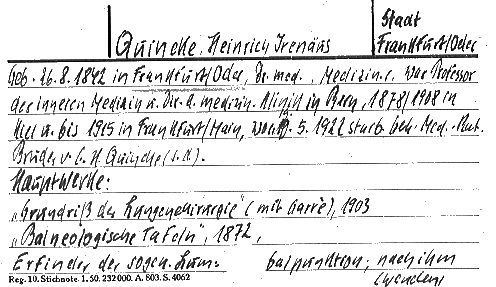 Stadt
Quincke, Heinrich Irenäus Frankfurt/Oder
Geb. 26.8.1842 in Frankfurt/Oder, Dr. med., Mediziner, war Professor
der inneren Medizin u. Dir. d. medizin. Klinik in Bern, 1878/1908 in
Kiel u. bis 1915 in Frankfurt/Main, wo 19. 5. 1922 starb. Geh. Med.-Rat.
Bruder v. G. H. Quincke (s.d.).
Hauptwerke:
„Grundriß der Lungenchirurgie" (mit Garrè), 1903
„Balneologische Tafeln", 1872,
Erfinder der sogen. Lum- balpunktion; nach ihm
Reg. 10. Stichnote. 1. 50. 232000. A. 803. S. 4062